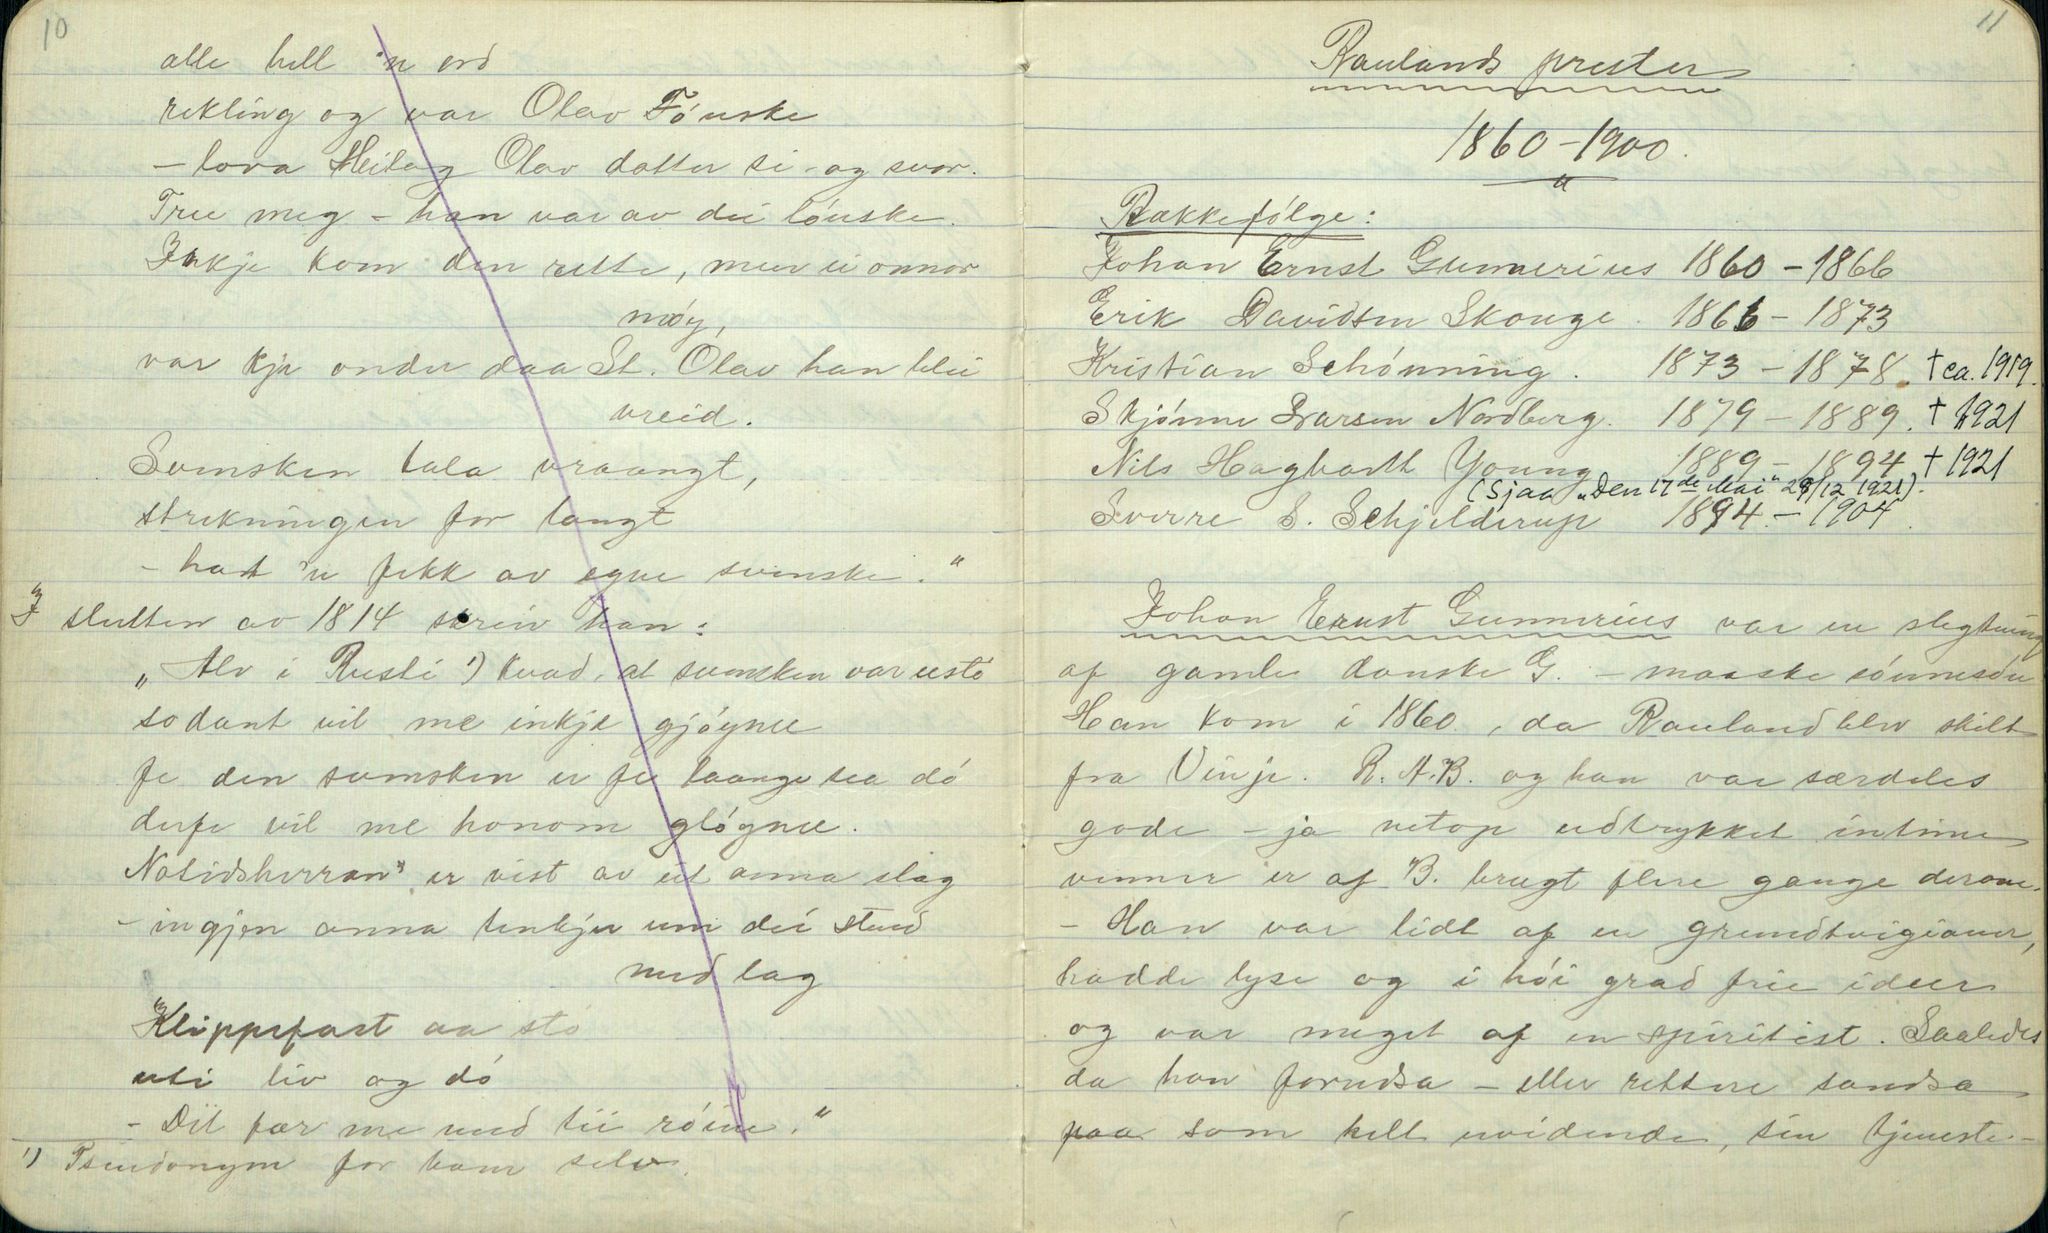 10
alle hell 'n ord
rekling og var Olav Fónske
– lova Heilag Olav dotter si – og svor.
Tru meg – han var av dei lónske.
Inkje kom den rette, men ei onnor
móy,
var kje onder daa St. Olav han blei
vreid.
Svensken tala vraangt,
strekningen for langt
– had 'n fekk av egne svenske."
I slutten av 1814 skreiv han:
„Alv i Rusti 1) kvad, at svensken var
sodant vil me inkje gjóyme
fe den svensken er fe laange sea dó
derfe vil me honom glóyme.
Notidsherran" er vist av eit anna slag
– ingjen anna tenkjer um dei stend
med lag
Klippefast aa stó
uti liv og dó
– Dit fær me med tii róine."
1) Pseudonym for ham selv.
11
Raulands prester
1860 – 1900.
Rækkefólge:
Johan Ernst Gunnerius 1860 – 1866
Erik Davidsen Skouge. 1866 – 1873
Kristian Schónning. 1873 – 1878. † ca. 1919.
Skjónne Larsen Nordberg. 1879 – 1889. † 1921
Nils Hagbarth Young 1889 – 1894 † 1921
(Sjaa „Den 17de Mai" 29/12 1921).
Sverre S. Schjelderup 1894 – 1904.
Johan Ernst Gunnerius var en slegtning
af gamle danske G. – maaske sónnesón
Han kom i 1860, da Rauland blev skilt
fra Vinje. R. A. B. og han var særdeles
gode – ja netop udtrykket intime
venner er af B. brugt flere gange derom.
– Han var lidt af en grundtvigianer,
hadde lyse og i hói grad frie ideer
og var meget af en spiritist. Saaledes
da han forudsa – eller rettere sandsa
paa som helt uvidende, sin tjeneste-